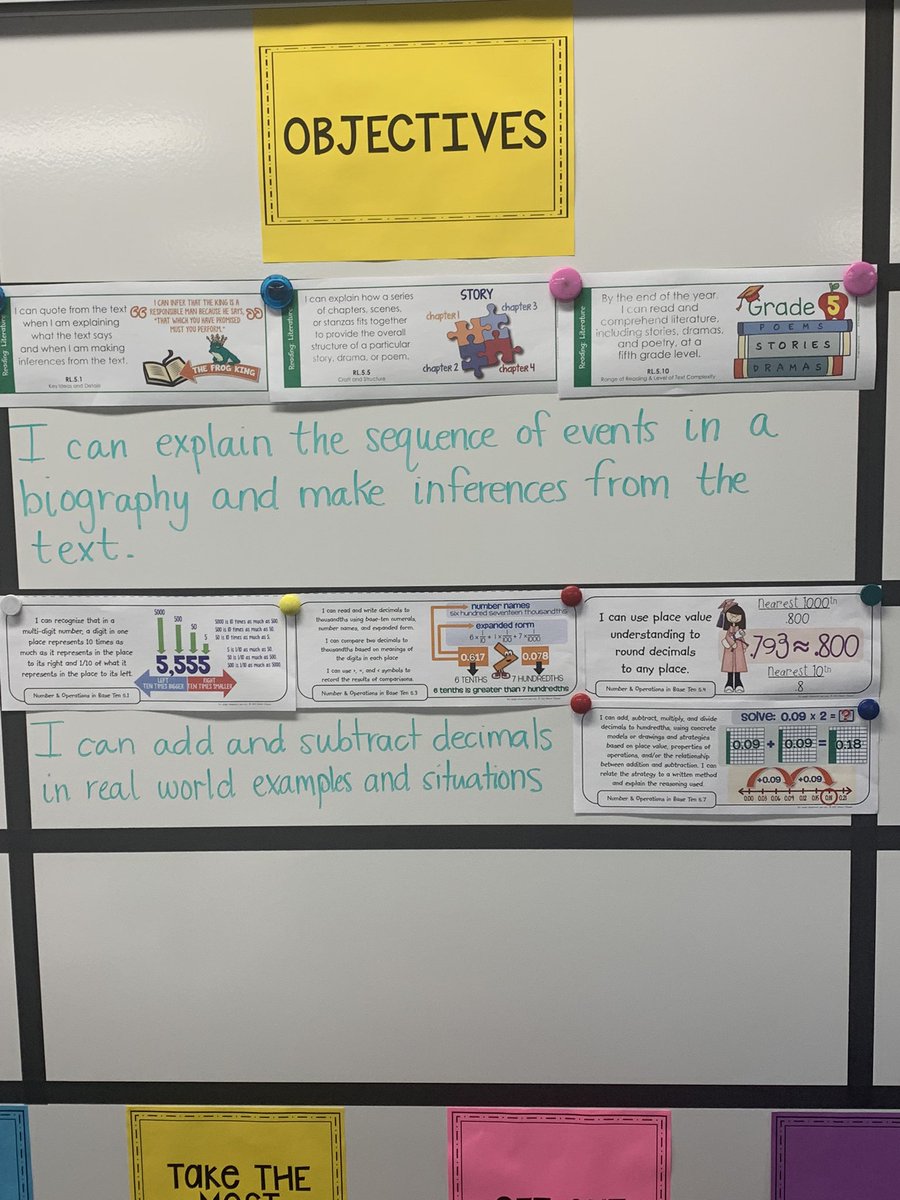 OBJECTIVES
Reading: Literature
I can quote from the text
when I am explaining
what the text says
and when I am making
inferences from the text.
RL.5.1
Key Ideas and Details
I CAN INFER THAT THE KING IS A
RESPONSIBLE MAN BECAUSE HE SAYS,
"THAT WHICH YOU HAVE PROMISED
MUST YOU PERFORM."
THE FROG KING
Reading: Literature
I can explain how a series
of chapters, scenes,
or stanzas fits together
to provide the overall
structure of a particular
story, drama, or poem.
RL.5.5
Craft and Structure
STORY
chapter 1
chapter 3
chapter 2
chapter 4
Reading: Literature
By the end of the year,
I can read and
comprehend literature,
including stories, dramas,
and poetry, at a
fifth grade level.
RL.5.10
Range of Reading & Level of Text Complexity
Grade 5
POEMS
STORIES
DRAMAS
I can explain the sequence of events in a
biography and make inferences from the
text.
I can recognize that in a
multi-digit number, a digit in one
place represents 10 times as
much as it represents in the place
to its right and 1/10 of what it
represents in the place to its left.
Number & Operations in Base Ten 5.1
5000
500
50
5
5,555
LEFT
TEN TIMES BIGGER
RIGHT
TEN TIMES SMALLER
5000 is 10 times as much as 500.
500 is 10 times as much as 50.
50 is 10 times as much as 5.
5 is 1/10 as much as 50.
50 is 1/10 as much as 500.
500 is 1/10 as much as 5000.
I can read and write decimals to
thousandths using base-ten numerals,
number names, and expanded form.
I can compare two decimals to
thousandths based on meanings of
the digits in each place
I can use >, =, and < symbols to
record the results of comparisons.
Number & Operations in Base Ten 5.3
number names
six hundred seventeen thousandths
expanded form
6 x 1/10 + 1 x 1/100 + 7 x 1/1000
0.617
0.078
6 TENTHS
7 HUNDREDTHS
6 tenths is greater than 7 hundredths
I can use place value
understanding to
round decimals
to any place.
Number & Operations in Base Ten 5.4
Nearest 100th
.800
.793≈.800
Nearest 10th
.8
I can add and subtract decimals
in real world examples and situations
I can add, subtract, multiply, and divide
decimals to hundredths, using concrete
models or drawings and strategies
based on place value, properties of
operations, and/or the relationship
between addition and subtraction. I can
relate the strategy to a written method
and explain the reasoning used.
Number & Operations in Base Ten 5.7
solve: 0.09 x 2 = ?
0.09 + 0.09 = 0.18
+0.09 +0.09
0.00 0.03 0.06 0.09 0.12 0.15 0.18 0.21
TAKE THE
MOST